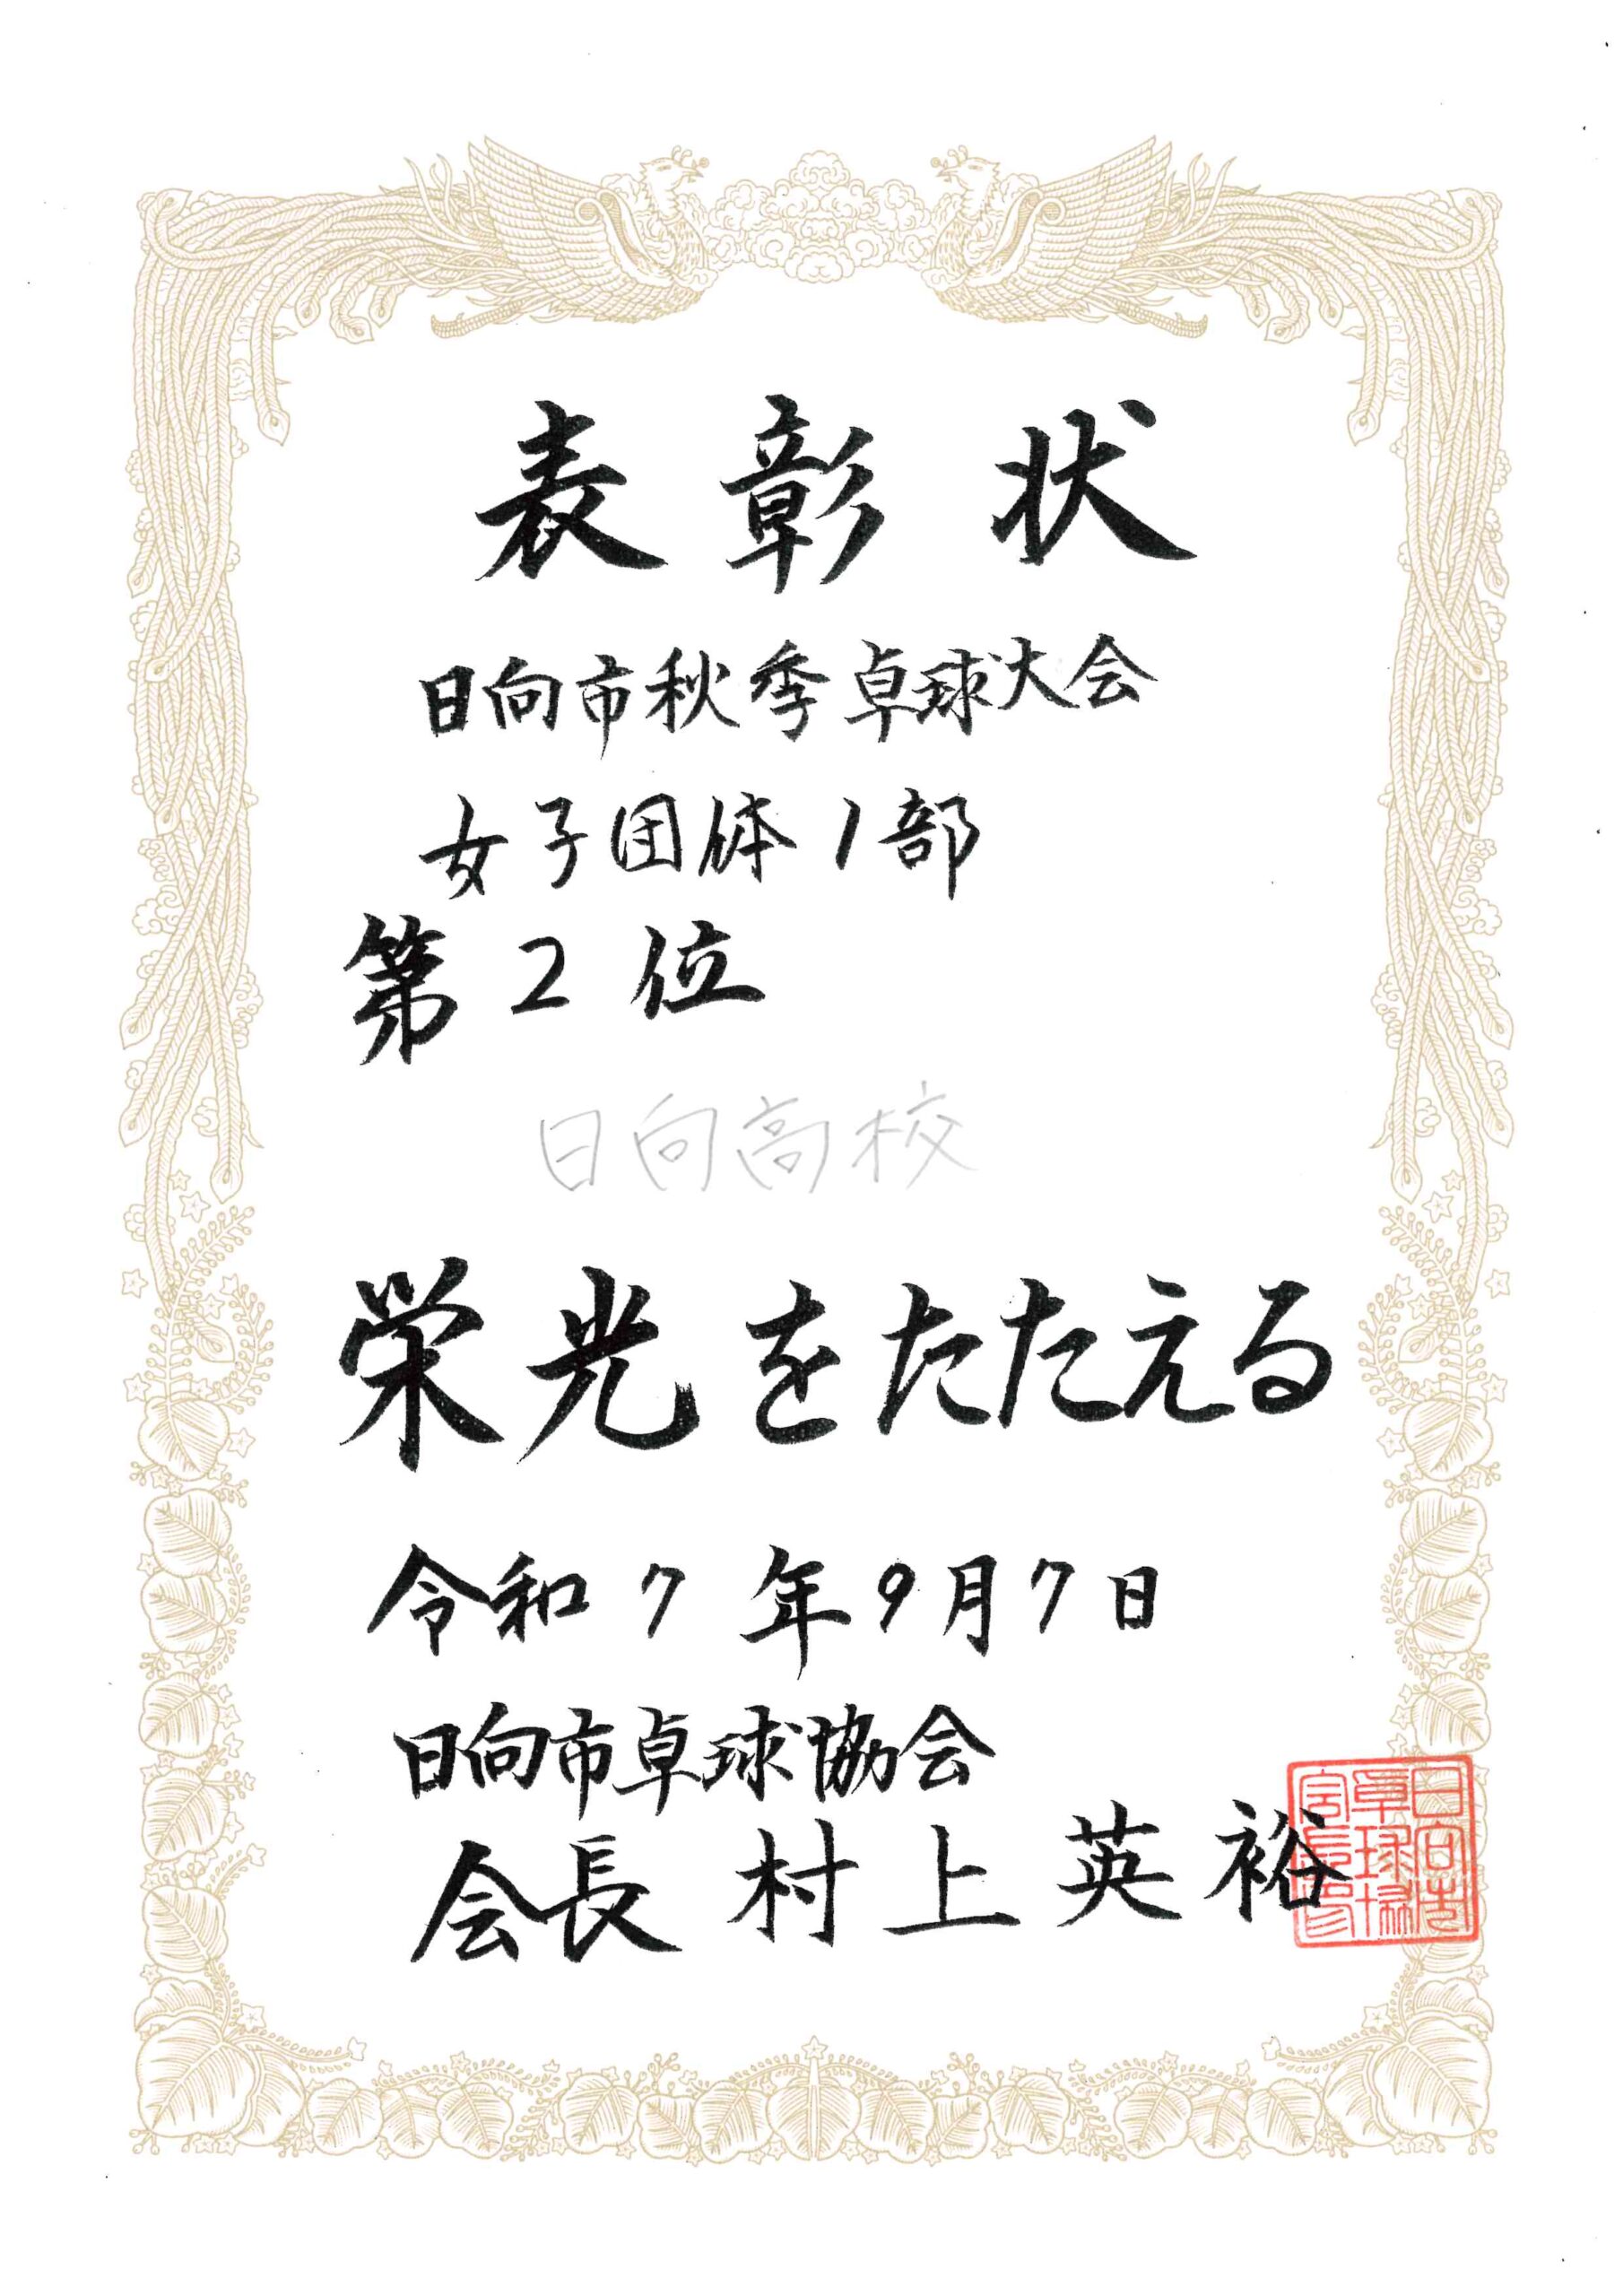 表彰状
日向市秋季卓球大会
女子団体1部
第2位
日向高校
栄光をたたえる
令和7年9月7日
日向市卓球協会
会長 村上英裕
日向市
卓球協
会長印